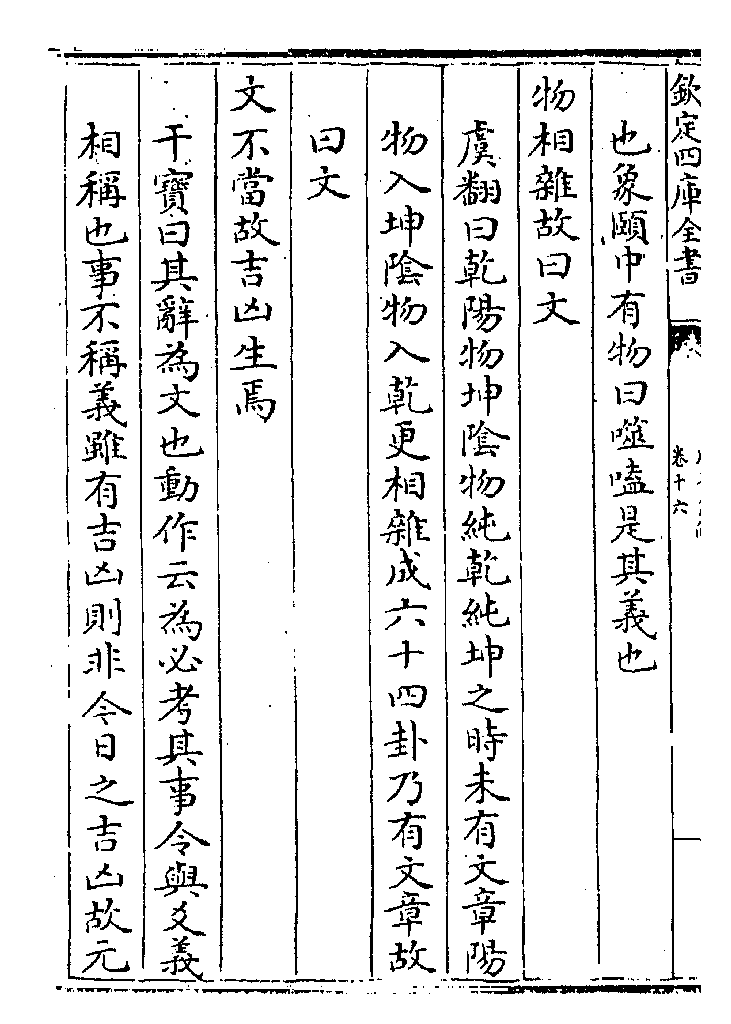 欽定四庫全書
卷十六
也象頤中有物曰噬嗑是其義也
物相雜故曰文
虞翻曰乾陽物坤隂物純乾純坤之時未有文章陽
物入坤隂物入乾更相雜成六十四卦乃有文章故
曰文
文不當故吉凶生焉
干寶曰其辭為文也動作云為必考其事令與爻義
相稱也事不稱義雖有吉凶則非今日之吉凶故元